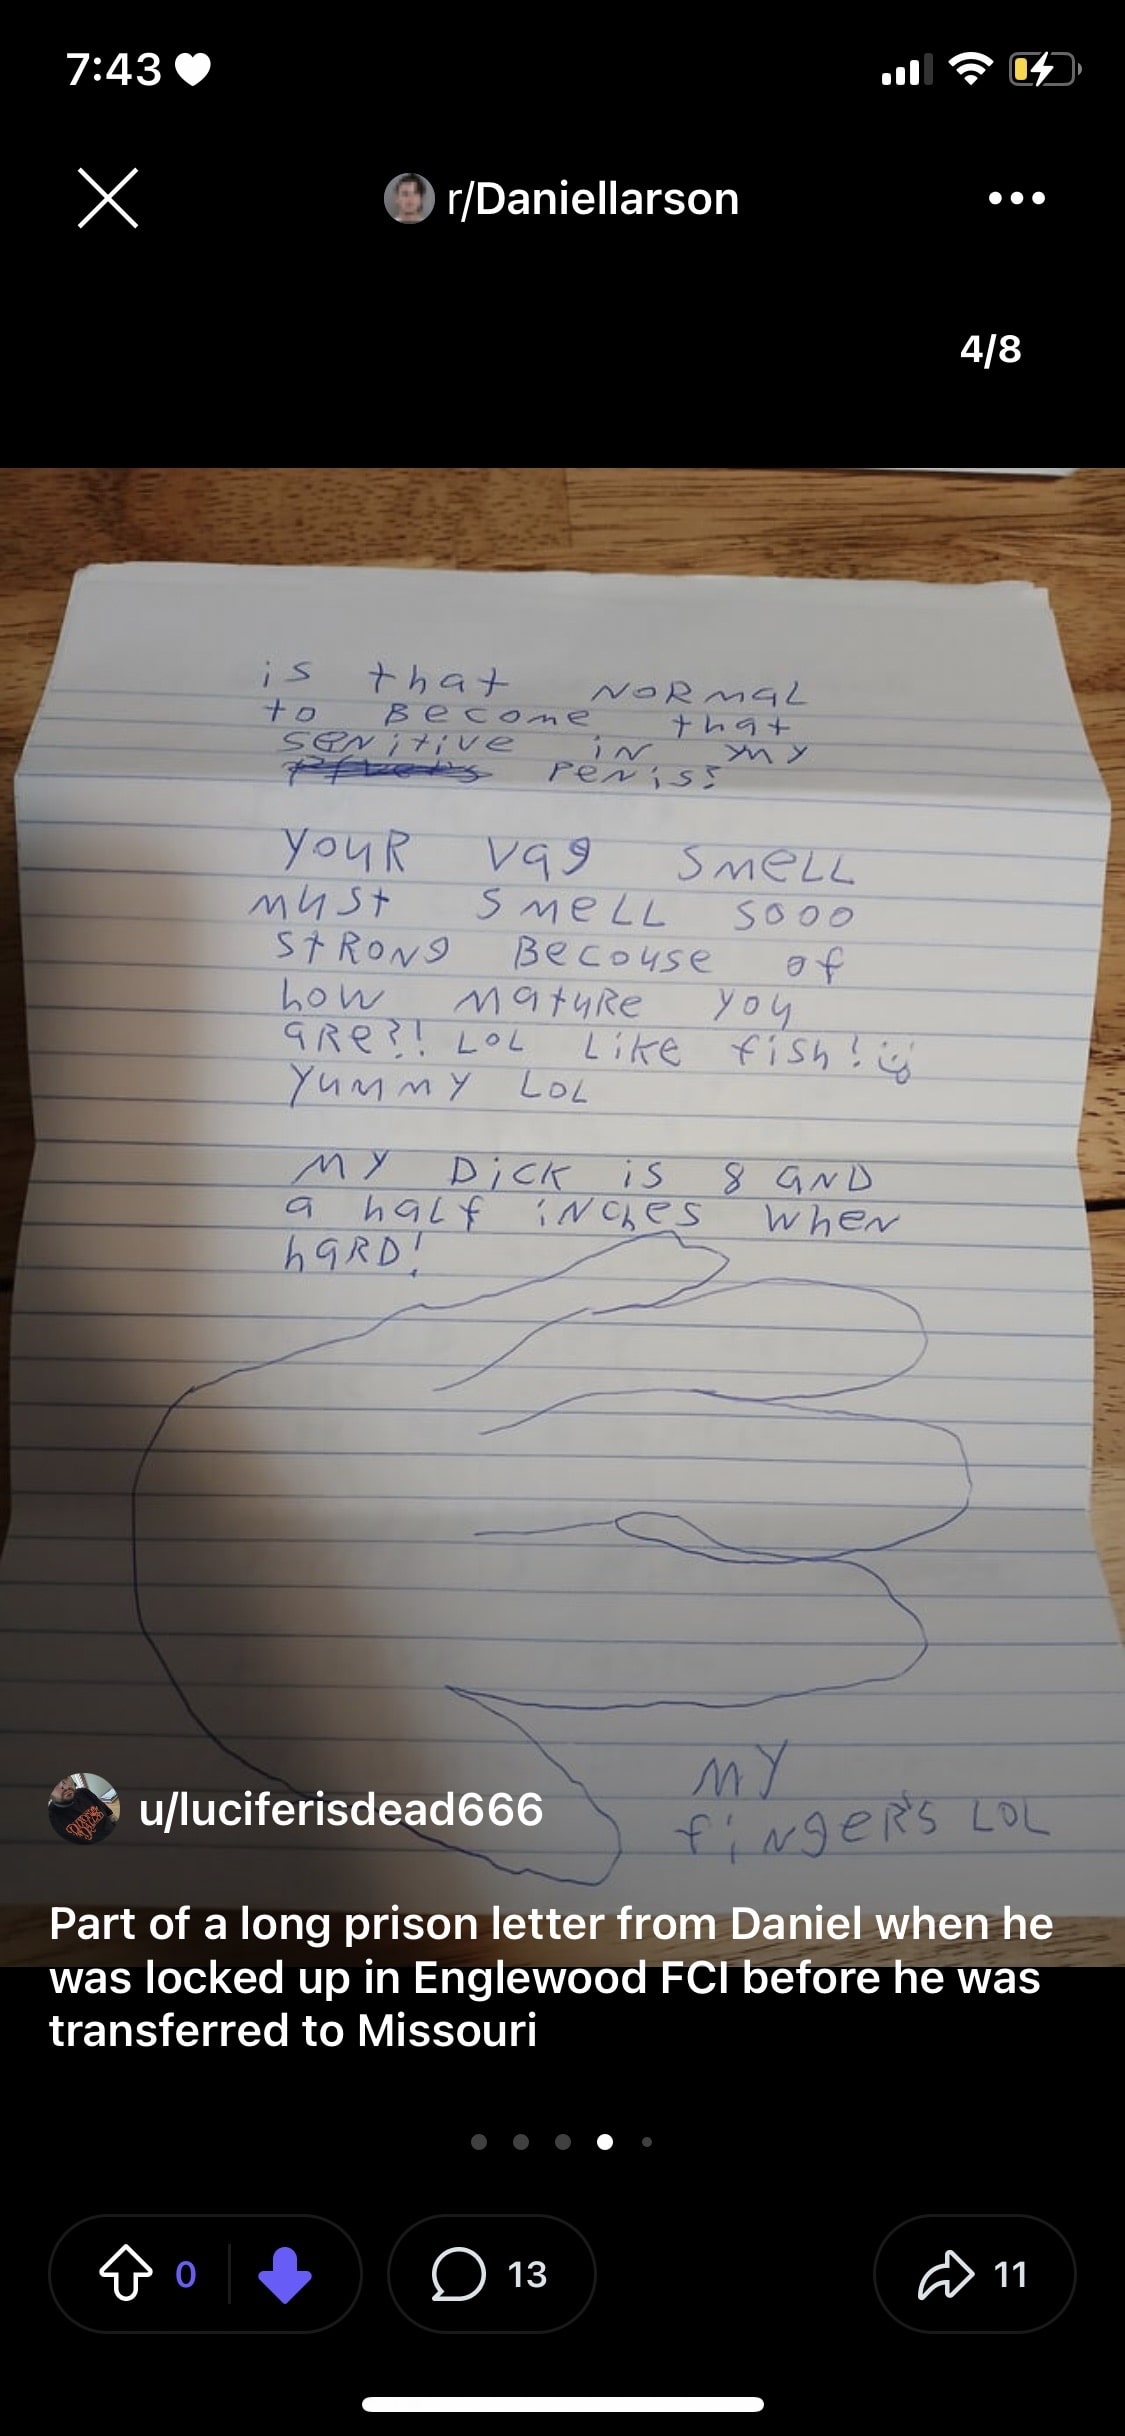 7:43
r/Daniellarson
4/8
is that NORMAL
to Become that
senitive in my
penis?
YOUR Vag SMELL
must SMELL sooo
STRONg Becouse of
how mature you
are?! LOL Like fish!
yummy LOL
MY DicK is 8 AND
a half inches when
hARD!
MY
fingers LOL
u/luciferisdead666
Part of a long prison letter from Daniel when he
was locked up in Englewood FCI before he was
transferred to Missouri
0
13
11